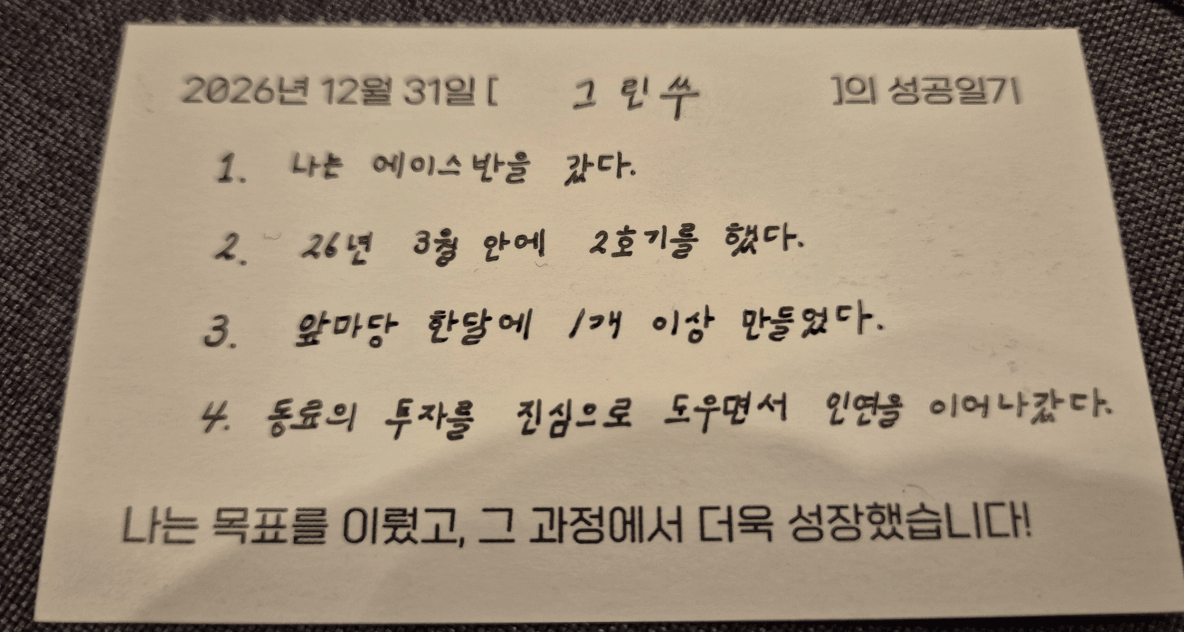 2026년 12월 31일 [ 그린쑤 ]의 성공일기
1. 나는 에이스반을 갔다.
2. 26년 3월 안에 2호기를 했다.
3. 앞마당 한달에 1개 이상 만들었다.
4. 동료의 투자를 진심으로 도우면서 인연을 이어나갔다.
나는 목표를 이뤘고, 그 과정에서 더욱 성장했습니다!